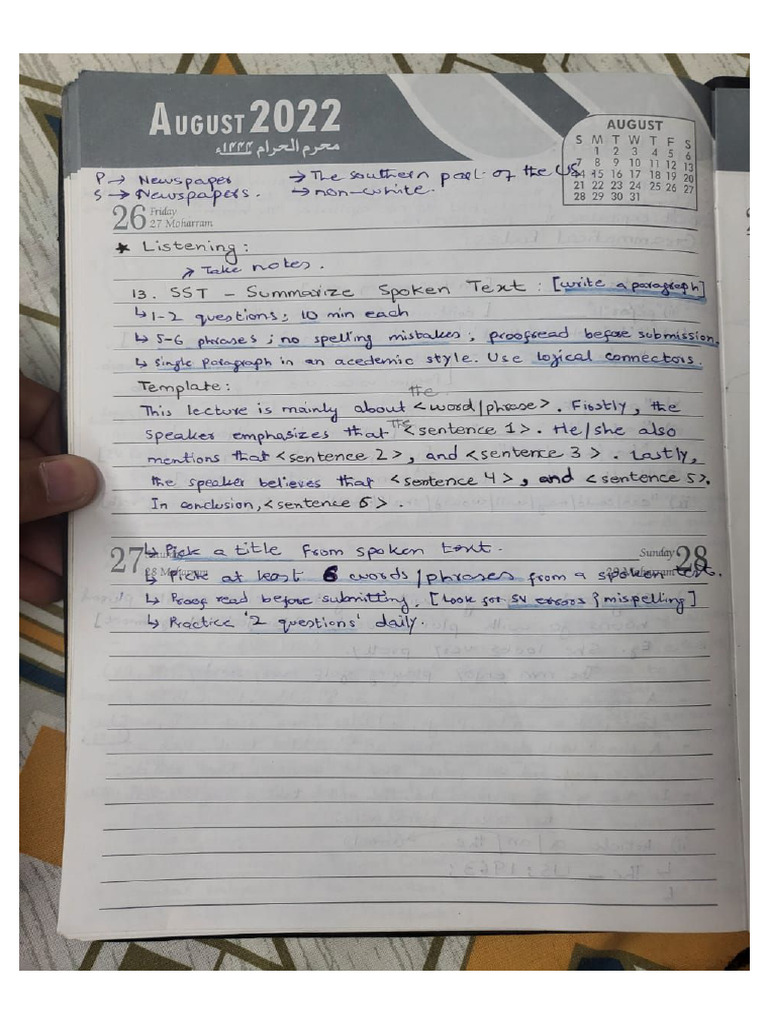 AUGUST 2022
محرم الحرام ۱۴۴۴ه
AUGUST
S M T W T F S
1 2 3 4 5 6
7 8 9 10 11 12 13
14 15 16 17 18 19 20
21 22 23 24 25 26 27
28 29 30 31
P → Newspaper → The southern part of the US
S → Newspapers. → non-white.
26 Friday
27 Moharram
★ Listening:
↗ Take notes.
13. SST - Summarize Spoken Text: [write a paragraph]
↳ 1-2 questions; 10 min each
↳ 5-6 phrases; no spelling mistakes; proofread before submission.
↳ single paragraph in an acedemic style. Use logical connectors.
Template:
the
This lecture is mainly about <word/phrase>. Firstly, the
speaker emphasizes that The <sentence 1>. He/she also
mentions that <sentence 2>, and <sentence 3>. Lastly,
the speaker believes that <sentence 4>, and <sentence 5>.
In conclusion, <sentence 6>.
↳ Pick a title from spoken text.
27 28 Moharram Sunday 28
↳ Pick at least 6 words/phrases from a spoken text.
↳ Proof read before submitting. [Look for SV errors & mispelling]
↳ Practice '2 questions' daily.